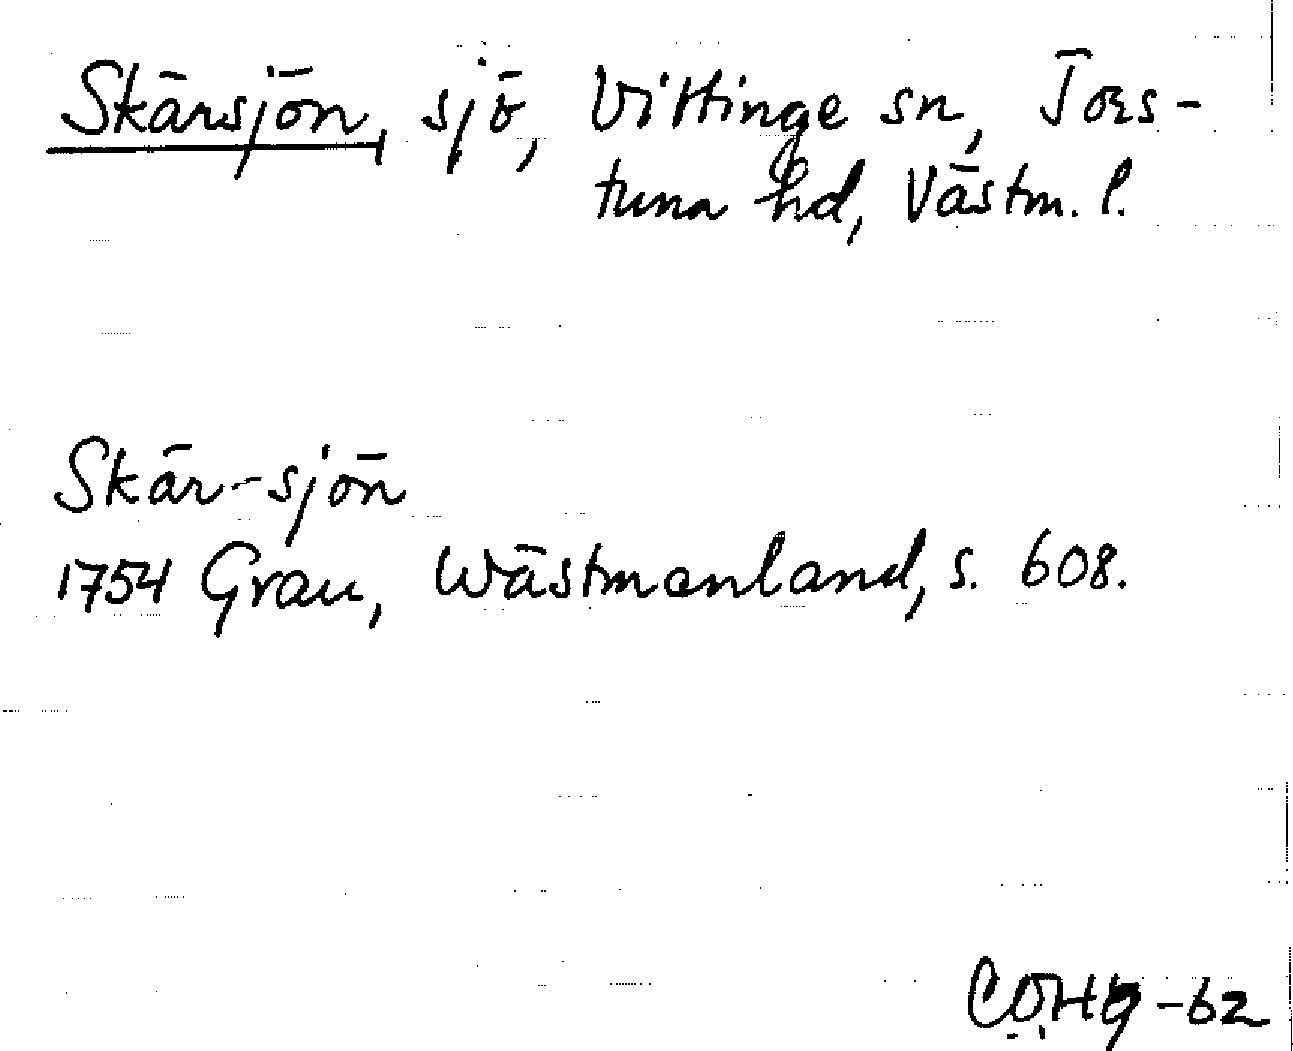 Skärsjön, sjö, Vittinge sn, Tors-
tuna hd, Västm. l.
Skär-sjön
1754 Grau, Wästmanland, s. 608.